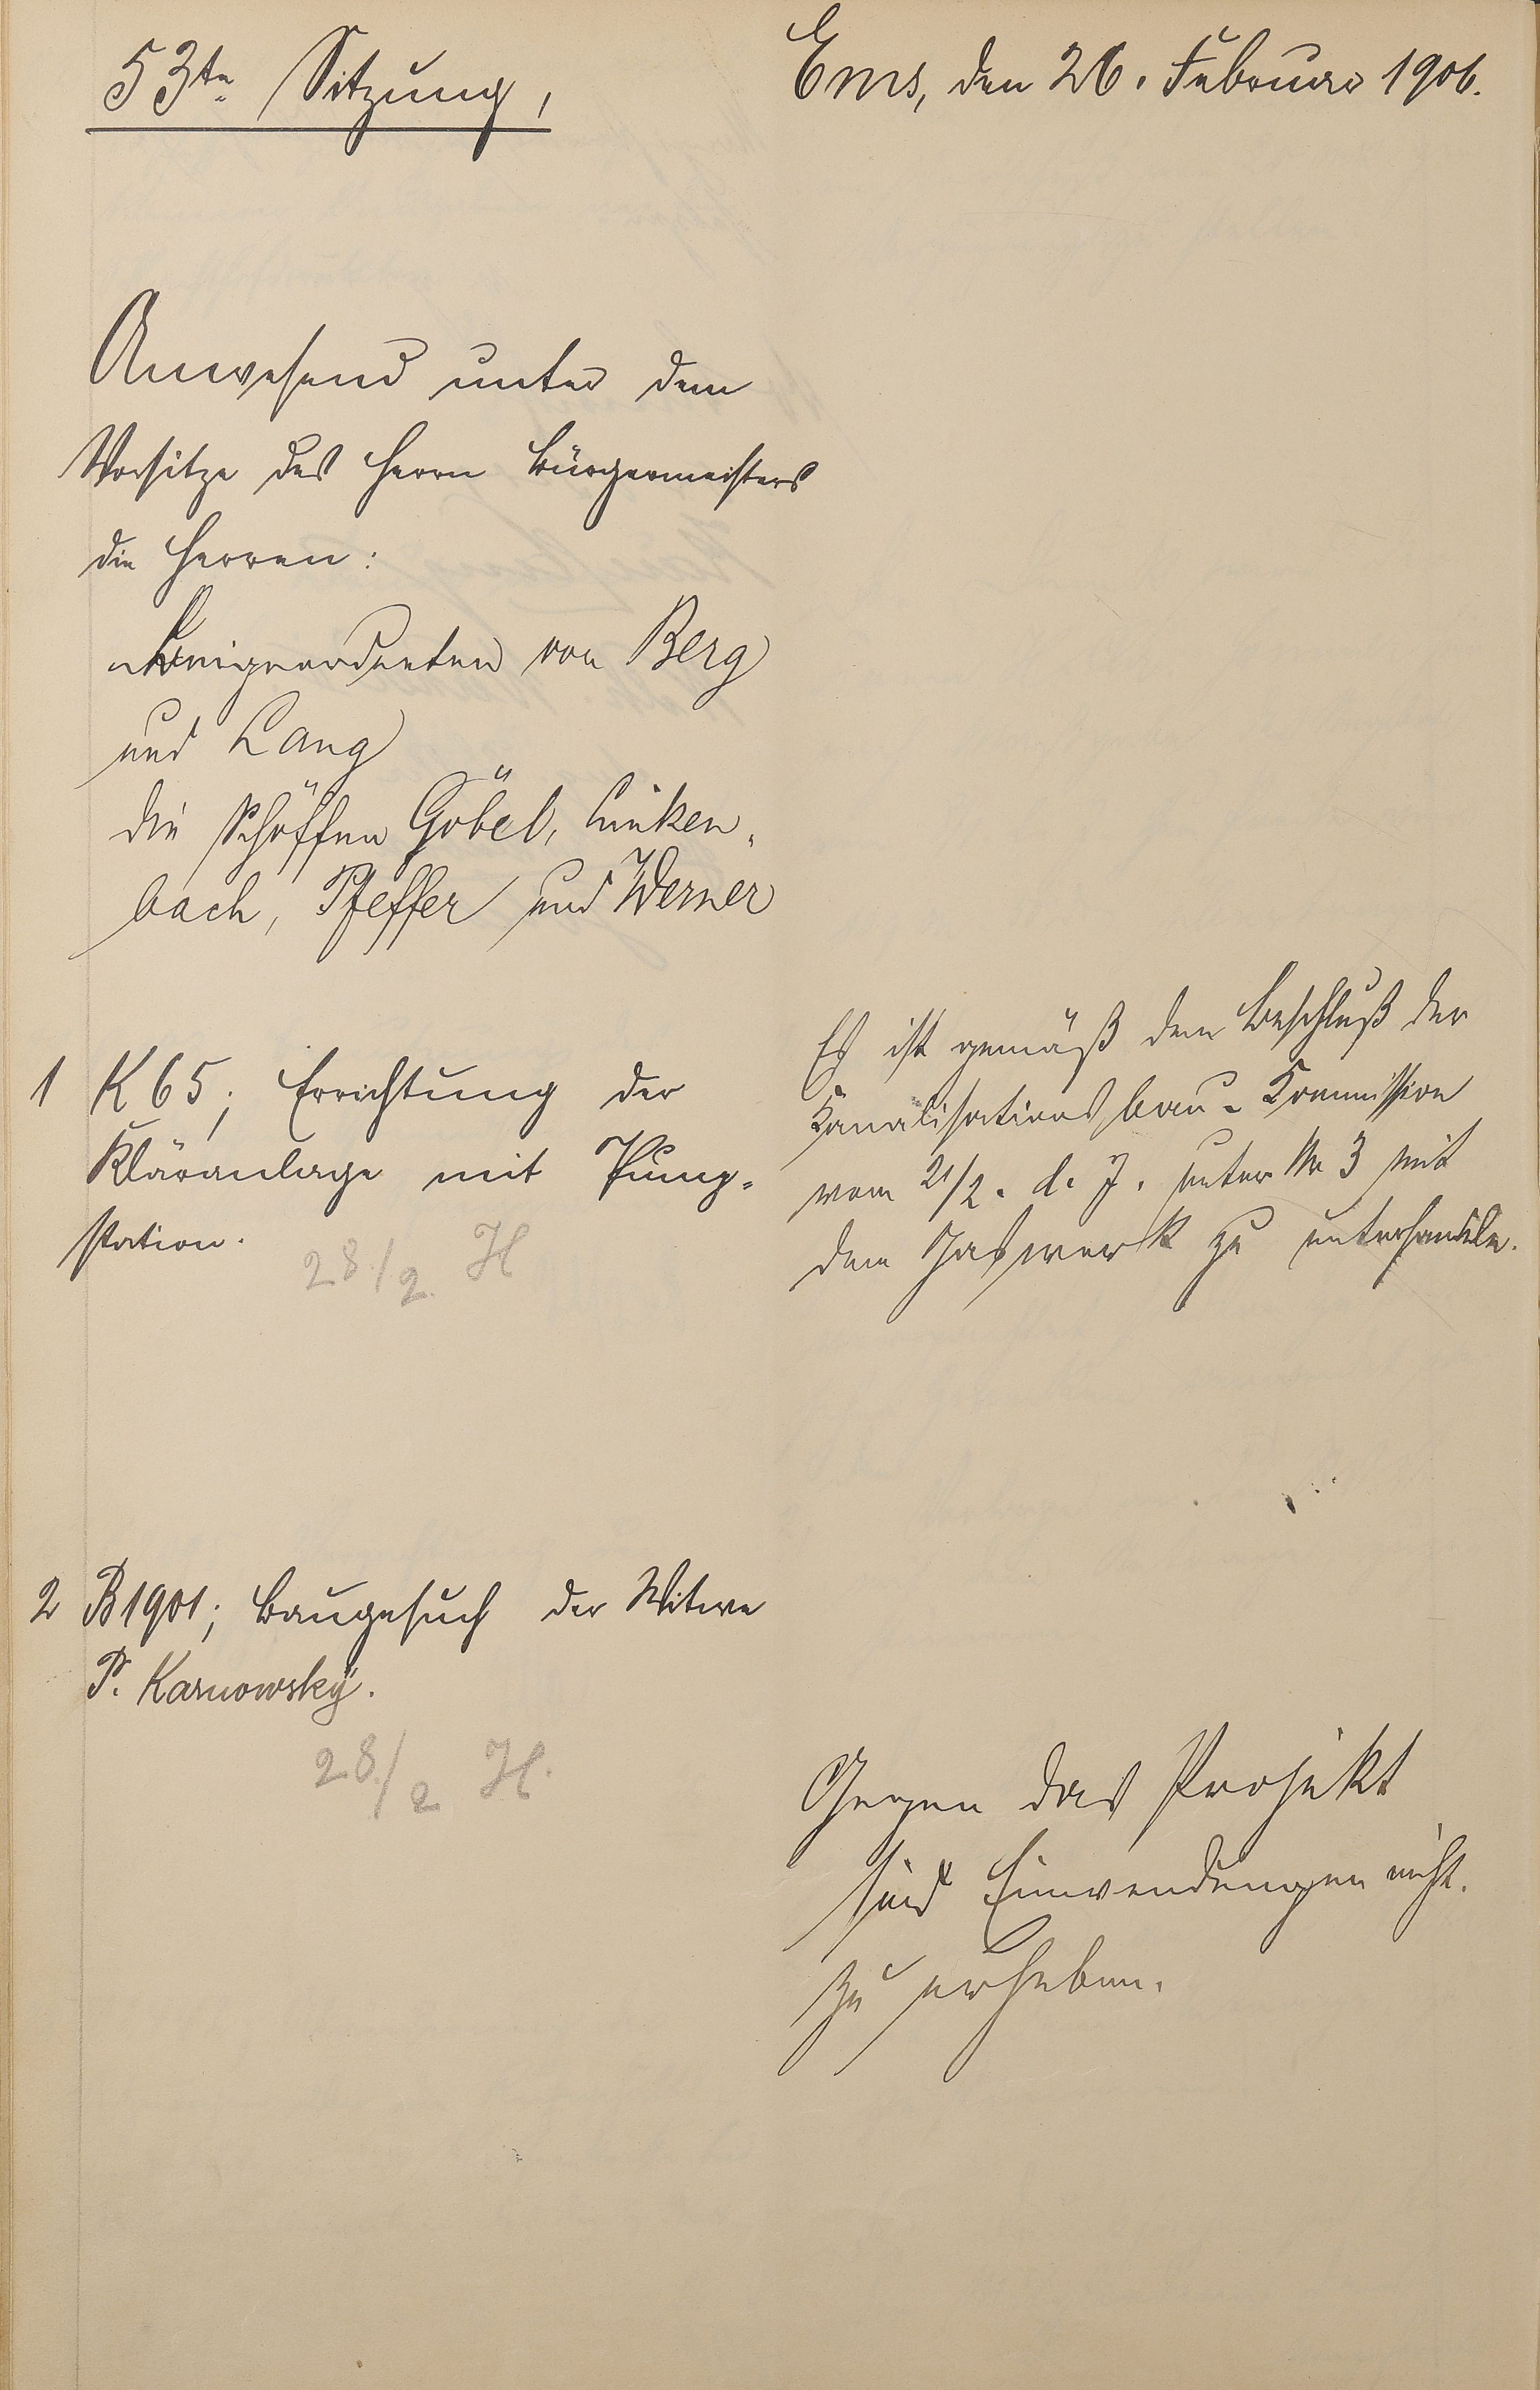 53te Sitzung,
Ems, den 26. Februar 1906.
Anwesend unter dem
Vorsitze des Herrn Bürgermeisters
die Herren:
Beigeordneten von Berg
und Lang
die Schöffen Göbel, Linken-
bach, Pfeffer und Werner
1 K 65; Errichtung der
Kläranlage mit Pump-
station.
28/2. H
Es ist gemäß dem Beschluß der
Kanalisationsbau-Kommission
vom 21/2. d. J. unter Nr 3 mit
dem Gaswerk zu unterhandeln.
2 B 1901; Baugesuch der Witwe
P. Karnowsky.
28/2 H.
Gegen das Projekt
sind Einwendungen nicht
zu erheben.